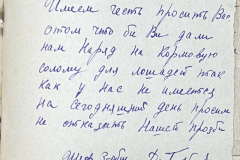 Имеем честь просить Вас
о том что би Ви дали
нам Наряд на Кормовую
солому для лошадей так
как у нас не имеется
на сегодняшний день просим
не отказать Нашей прозби